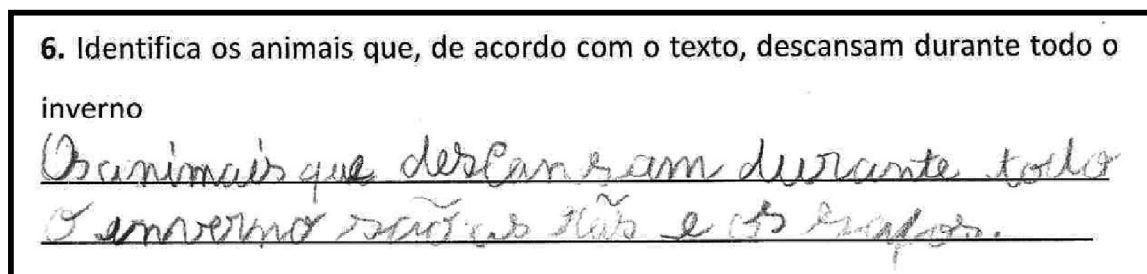 6. Identifica os animais que, de acordo com o texto, descansam durante todo o
inverno
Os animais que descansam durante todo
o inverno são as rãs e os sapos.